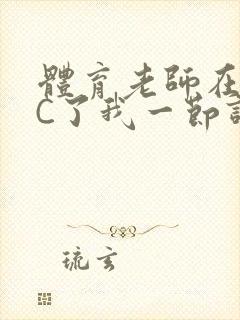 體育老師在
C了我一節
琉玄